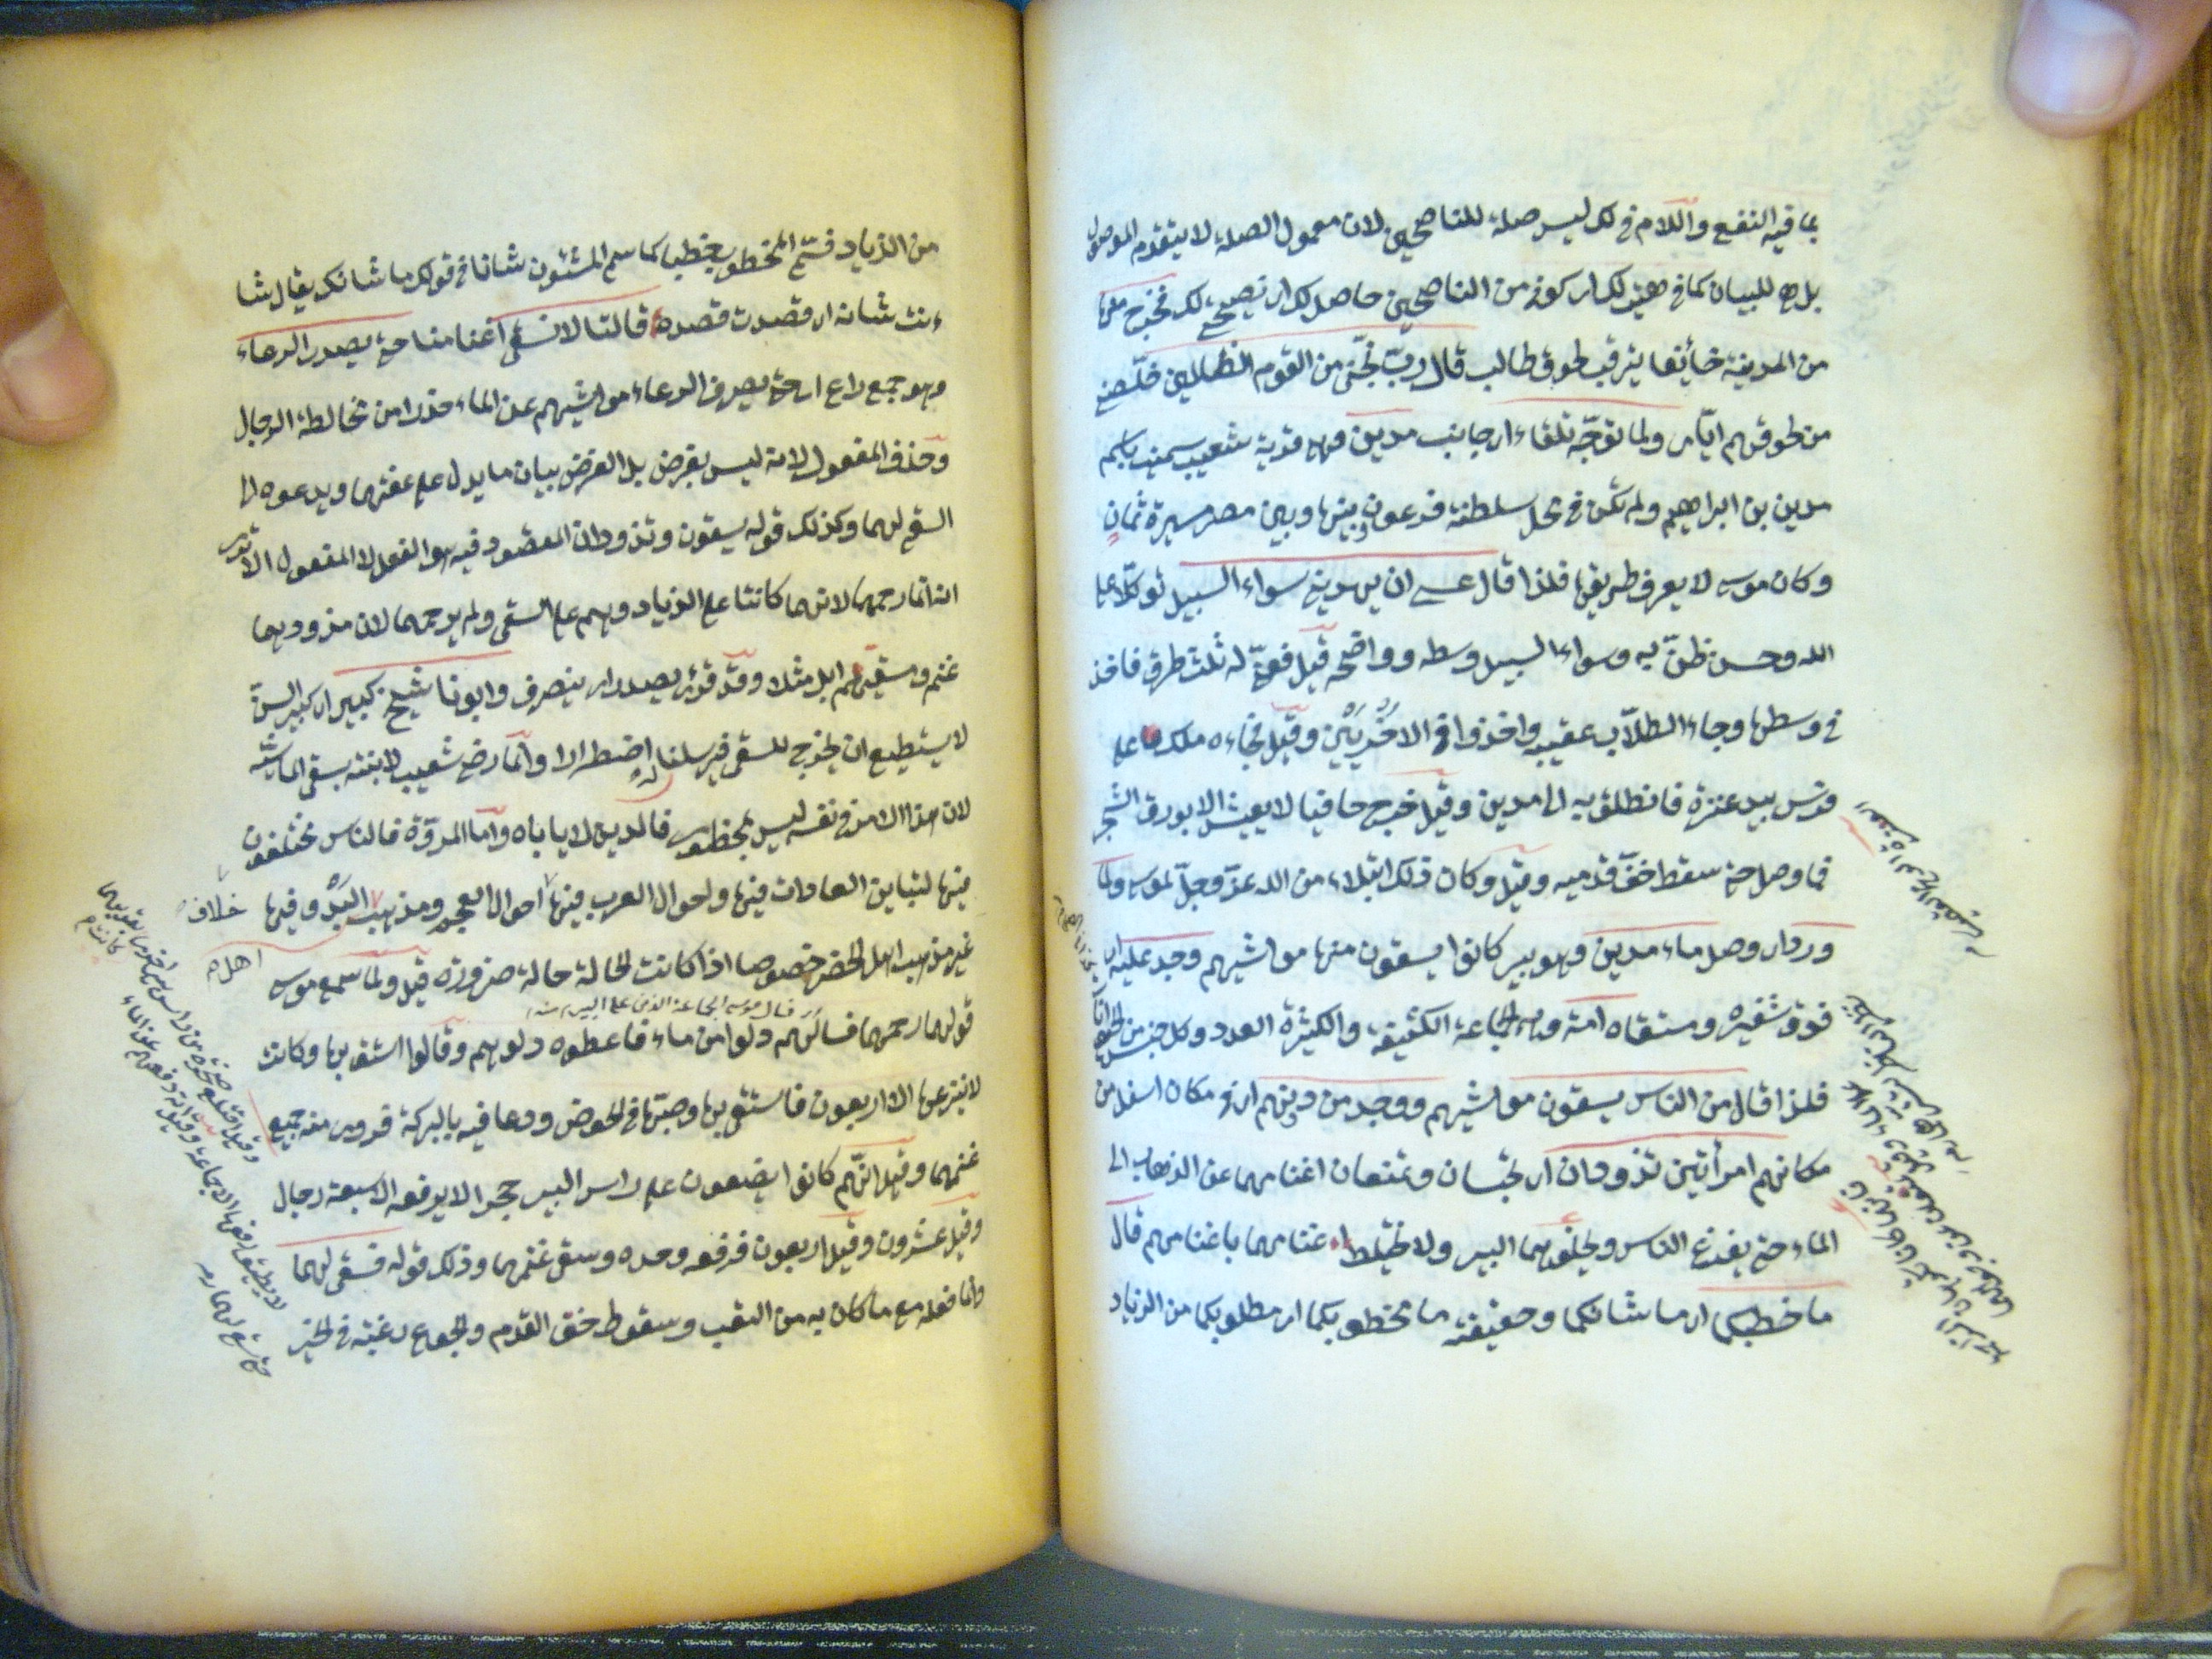 بما فيه النفع واللام في لك ليس صلة للناصحين لان معمول الصلة لا يتقدم الموصول
بل هو للبيان كما في هيت لك اى كونى من الناصحين حاصل لك اى نصيحى لك فخرج منها
من المدينة خائفا يترقب لحوق طالب قال رب نجنى من القوم الظالمين خلصنى
من لحوقهم اياى ولما توجه تلقاء اى جانب مدين وهى قرية شعيب سميت باسم
مدين بن ابراهيم ولم تكن في محل سلطنة فرعون وبينها وبين مصر مسيرة ثمان
وكان موسى لا يعرف طريقها فلذا قال عسى ان يهدينى سواء السبيل توكلا على
الله وحسن ظن به وسواء السبيل وسطه وواضحه قيل فعن له ثلث طرق فاخذ
في وسطها وجاء الطلاب عقيبه واخذوا في الاخريين وقيل فجاءه ملك على
فرس بيده عنزة فانطلق به الى مدين وقيل خرج حافيا لا يعيش الا بورق الشجر
فما وصل حتى سقط خف قدميه وقيل وكان ذلك ابتلاء من الله عز وجل لموسى ولما
ورد اى وصل ماء مدين وهو بير كانوا يسقون منها مواشيهم وجد عليه اى
فوق شفيره ومستقاه امة وهى الجماعة الكثيفة والكثيرة العدد وكل جنس من الحيوان
فلذا قال من الناس يسقون مواشيهم ووجد من دونهم اى في مكان اسفل من
مكانهم امرأتين تذودان اى تحبسان وتمنعان اغنامهما عن الذهاب الى
الماء حتى يفرغ الناس ويخلو لهما البير ولا تختلط اغنامهما باغنامهم قال
ما خطبكما اى ما شانكما وحقيقته ما مخطوبكما اى مطلوبكما من الزياد
من الذياد فسمى المخطوب خطبا كما سمى المشئون شانا في قولك ما شانك يقال شا
ءنت شانه اى قصدت قصده قالتا لا نسقى اغنامنا حتى يصدر الرعاء
وهو جمع راع اى حتى يصرف الرعاء مواشيهم عن الماء حذرا من مخالطة الرجال
وحذف المفعول لانه ليس بغرض بل الغرض بيان ما يدل على عفتهما ويدعوه الى
السقى لهما وكذلك قوله يسقون وتذودان المقصود فيه هو الفعل لا المفعول الا ترى
انه انما رحمهما لانهما كانتا على الذياد وهم على السقى ولم يرحمهما لان مذودهما
غنم ومسقيهم ابل مثلا وقد قرئ يصدر اى ينصرف وابونا شيخ كبير اى كبير السن
لا يستطيع ان يخرج للسقى فيرسلنا اليه اضطرارا وانما رضى شعيب لابنته بسقى الماشية
لان هذا الامر في نفسه ليس بمحظور فالدين لا يأباه واما المروة فالناس مختلفون
فيها لتباين العادات فيها ولحوال العرب فيها احوال العجم ومذهب البدو فيها خلاف
غير مذهب اهل الحضر خصوصا اذا كانت الحالة حالة ضرورة قيل ولما سمع موسى
قولهما رحمهما فسألهم دلوا من ماء فاعطوه دلوهم وقالوا استق بها وكانت
لا ينزعها الا اربعون فاستقى بها وصبها في الحوض ودعا فيه بالبركة فروى منه جميع
غنمهما وقيل انهم كانوا يضعون على راس البير حجرا لا يرفعه الا سبعة رجال
وقيل عشرون وقيل اربعون فرفعه وحده وسقى غنمهما وذلك قوله فسقى لهما
وانما فعله مع ما كان به من التعب وسقوط خف القدم والجوع رغبة في الخير